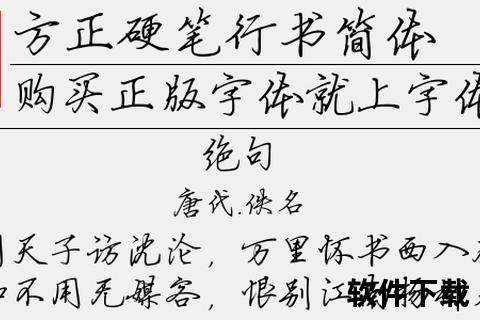 方正硬笔行书简体
购买正版字体就上字体
绝句
唐代.佚名
天子访沈沦，万里怀书西入
不用无媒客，恨别江
软件下载